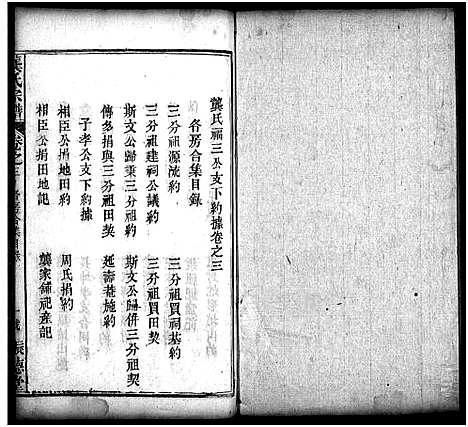 龔氏福三公支下約據卷之三
各房合集目錄
三分祖源流約　三分祖買祠基約
三分祖建祠公議約　三分祖買田契
斯文公歸秉三分祖約　斯文公歸併三分祖契
傳多捐與三分祖田契　延壽菴施約
子孝公支下約據
相臣公捐田地約　周氏捐約
相臣公捐田地記　龔家鋪祀產記
龔氏宗譜　卷之三　各房合集目錄　一